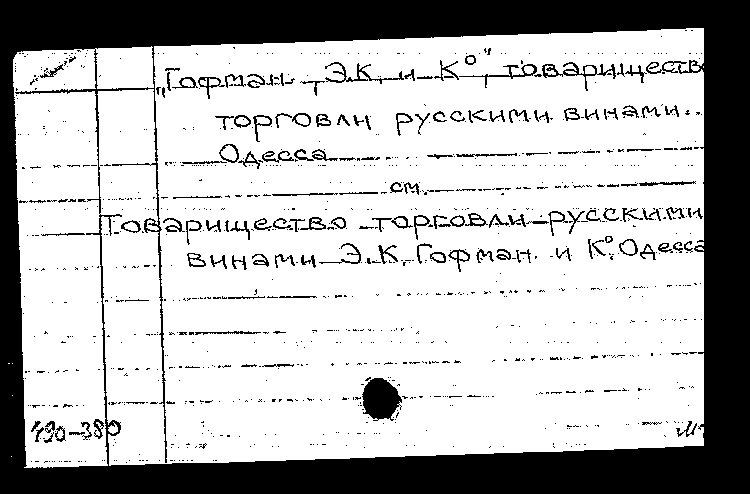 „Гофман, Э.К. и К⁰", товариществ
торговли русскими винами..
Одесса
см.
Товарищество торговли русскими
винами Э.К. Гофман и К⁰, Одесса
490-380